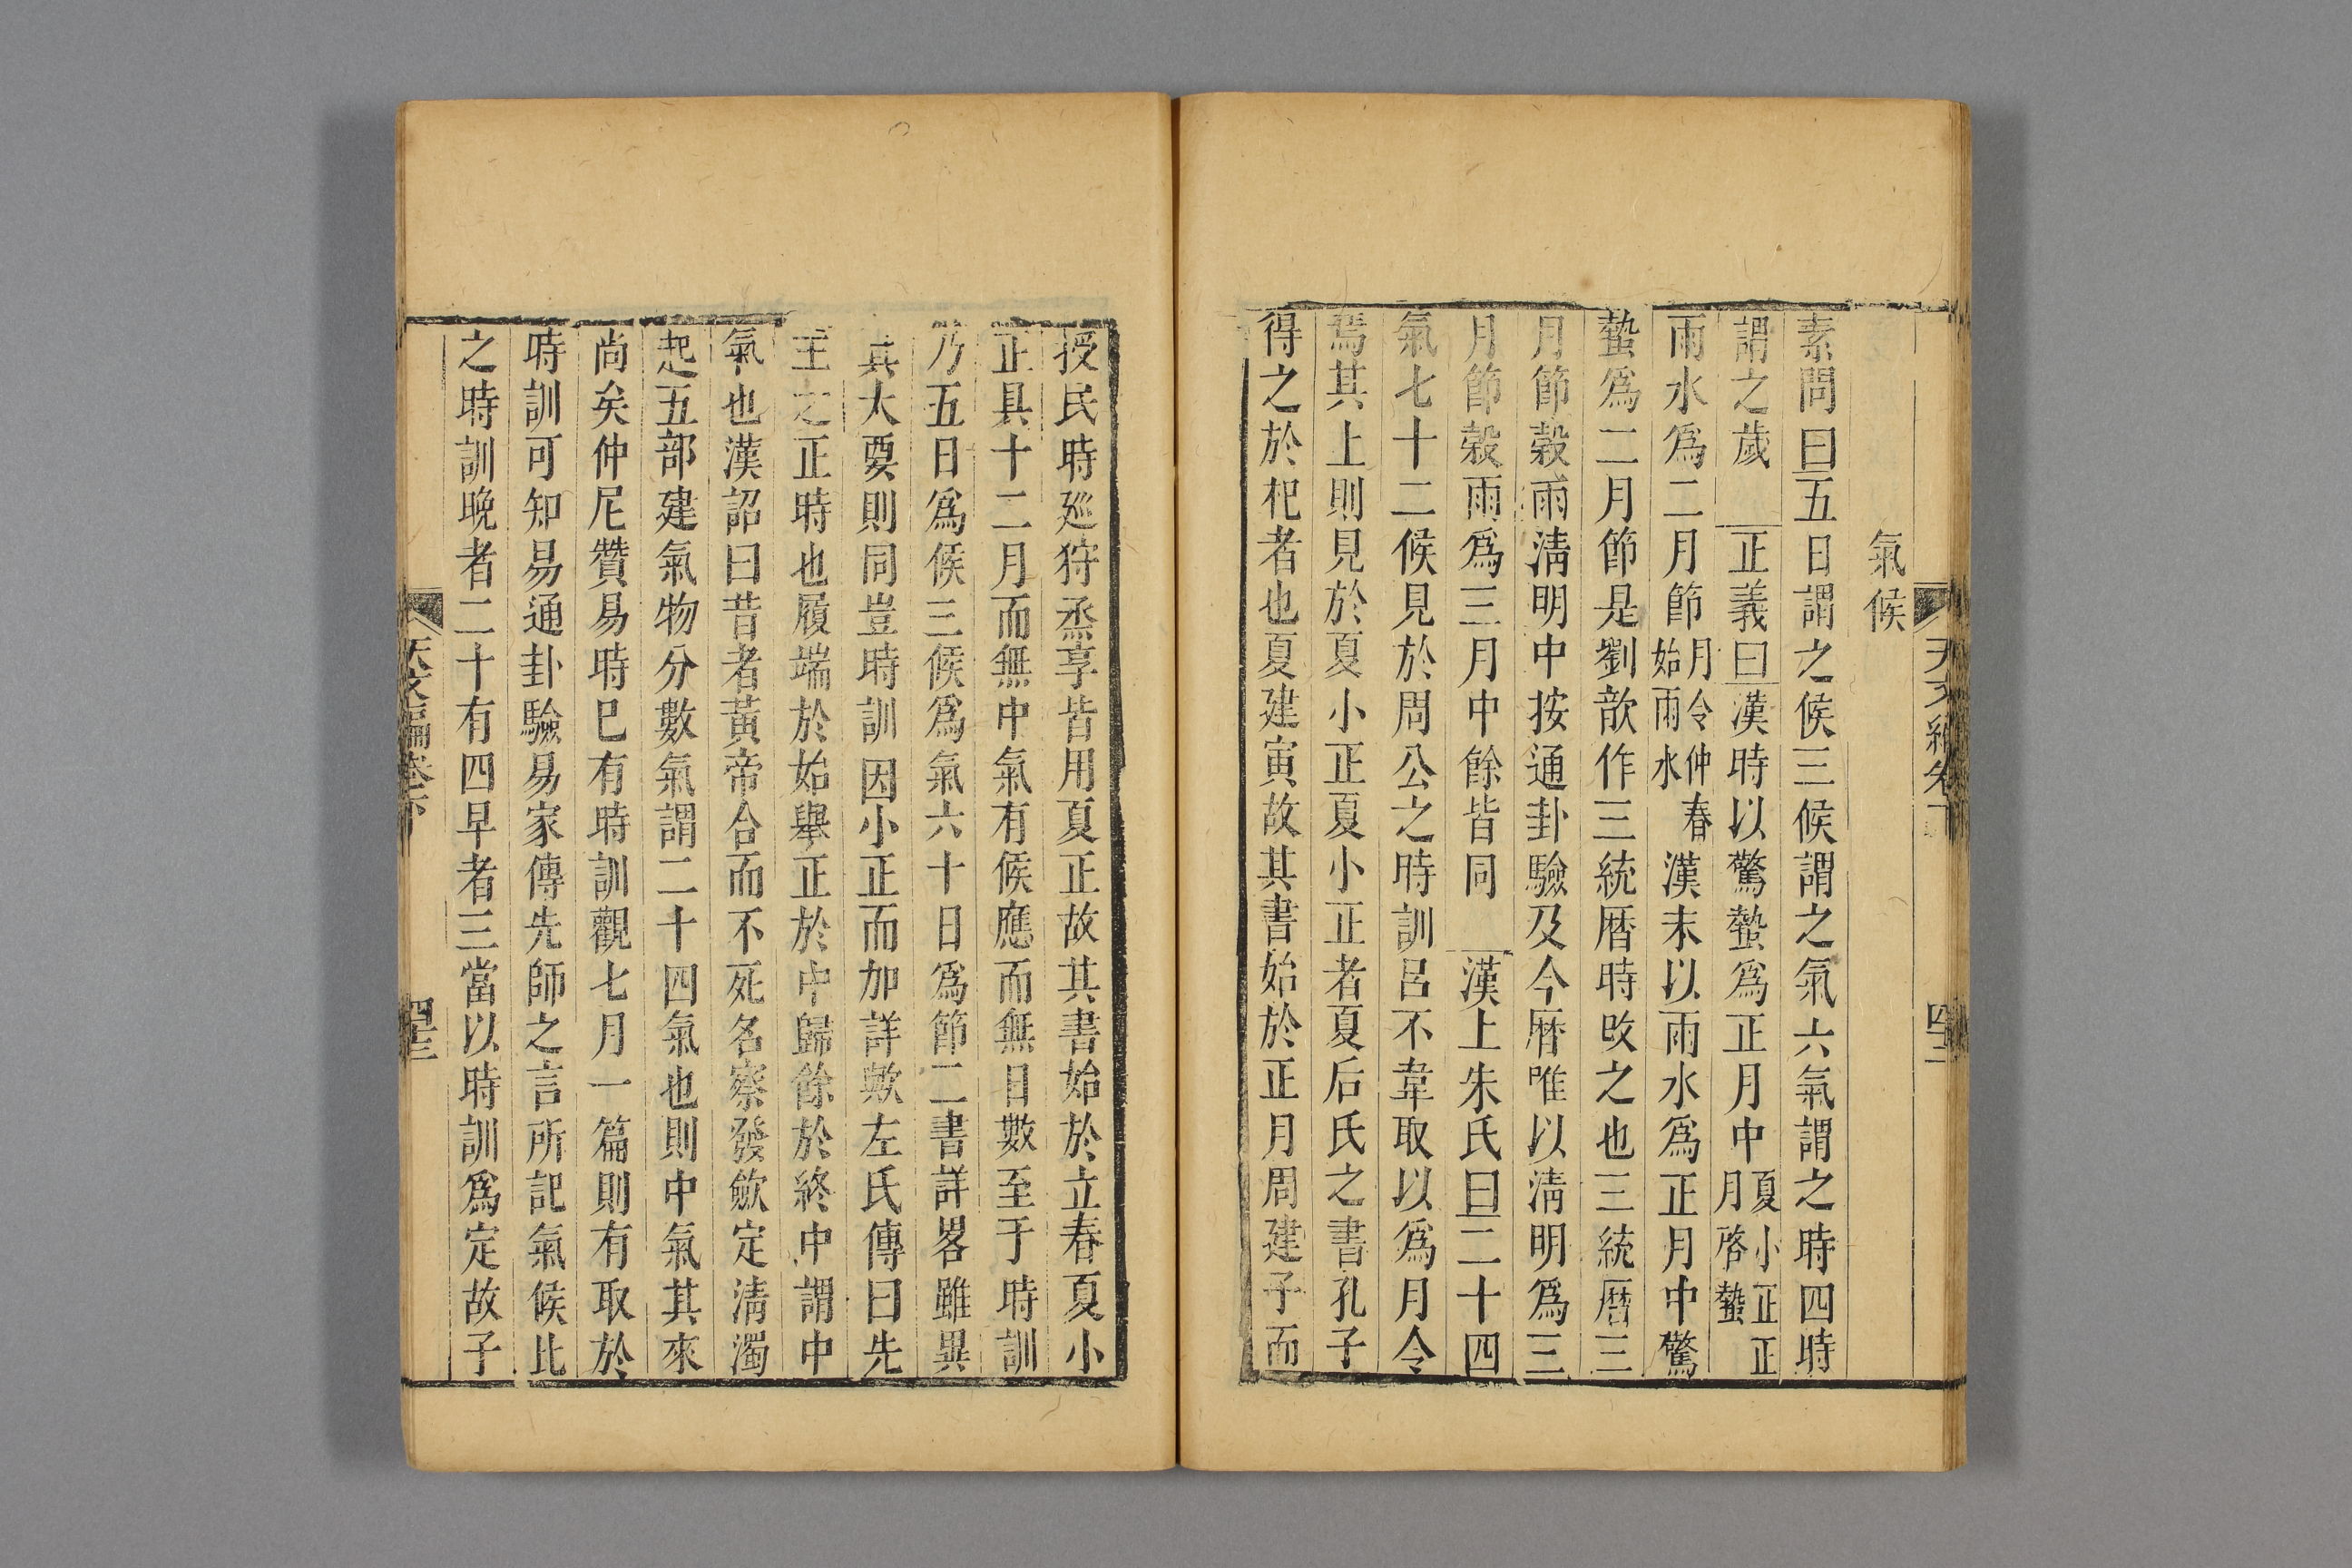 氣候
素問曰五日謂之候三候謂之氣六氣謂之時四時
謂之歲正義曰漢時以驚蟄爲正月中夏小正正月啓蟄
雨水爲二月節月令仲春始雨水漢末以雨水爲正月中驚
蟄爲二月節是劉歆作三統曆時改之也三統曆三
月節穀雨淸明中按通卦驗及今曆唯以淸明爲三
月節穀雨爲三月中餘皆同漢上朱氏曰二十四
氣七十二候見於周公之時訓呂不韋取以爲月令
焉其上則見於夏小正夏小正者夏后氏之書孔子
得之於杞者也夏建寅故其書始於正月周建子而
授民時廵狩烝享皆用夏正故其書始於立春夏小
正具十二月而無中氣有候應而無日數至于時訓
乃五日爲候三候爲氣六十日爲節二書詳畧雖異
其大要則同豈時訓因小正而加詳歟左氏傳曰先
王之正時也履端於始舉正於中歸餘於終中謂中
氣也漢詔曰昔者黃帝合而不死名察發歛定淸濁
起五部建氣物分數氣謂二十四氣也則中氣其來
尚矣仲尼贊易時巳有時訓觀七月一篇則有取於
時訓可知易通卦驗易家傳先師之言所記氣候比
之時訓晚者二十有四早者三當以時訓爲定故子
天文編卷下
四十三